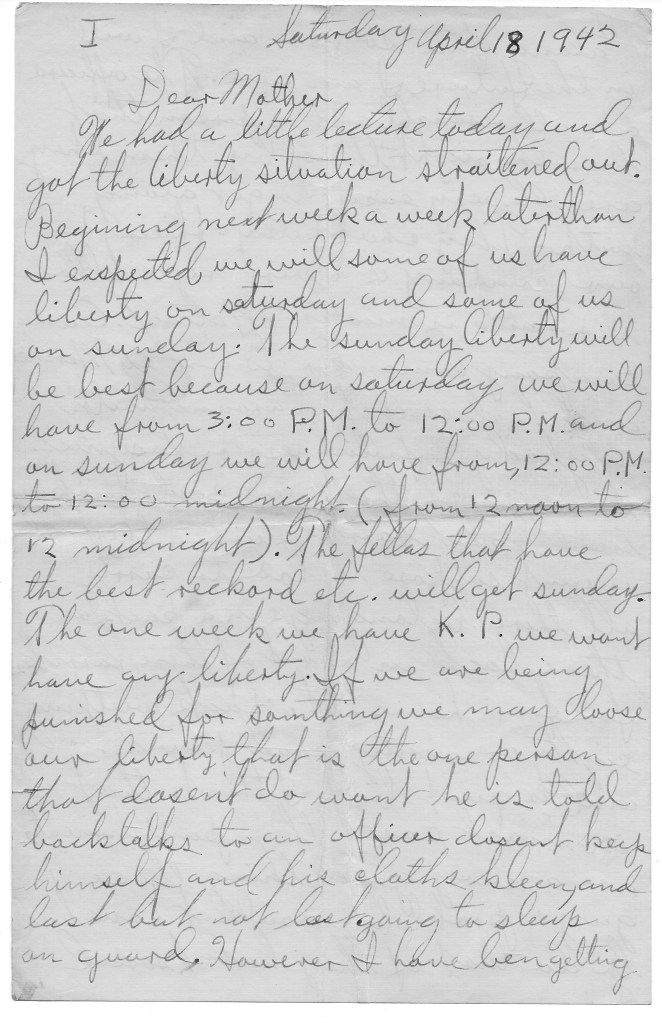 I
Saturday April 18, 1942
Dear Mother
We had a little lecture today and
got the liberty situation straitened out.
Begining next week a week later than
I exspected we will some of us have
liberty on saturday and some of us
on sunday. The sunday liberty will
be best because on saturday we will
have from 3:00 P.M. to 12:00 P.M. and
on sunday we will have from, 12:00 P.M.
to 12:00 midnight. (from 12 noon to
12 midnight). The fellas that have
the best reckord etc. will get sunday.
The one week we have K. P. we wont
have any liberty. If we are being
punished for somthing we may loose
our liberty that is the one person
that dosent do want he is told
backtalks to an officer dosent keep
himself and his cloths kleen, and
last but not lest going to sleep
on guard. However I have ben getting